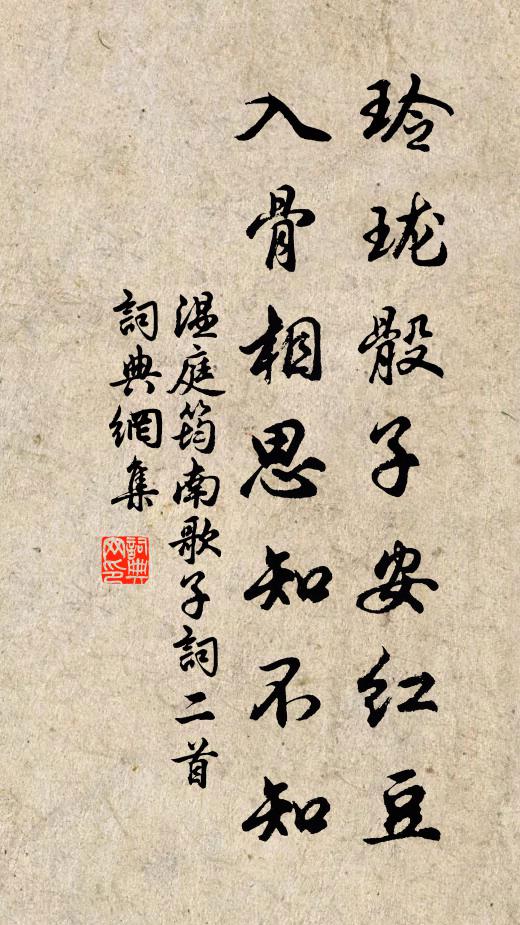 玲珑骰子安红豆
入骨相思知不知
温庭筠南歌子詞二首
詞典網集
詞典网印